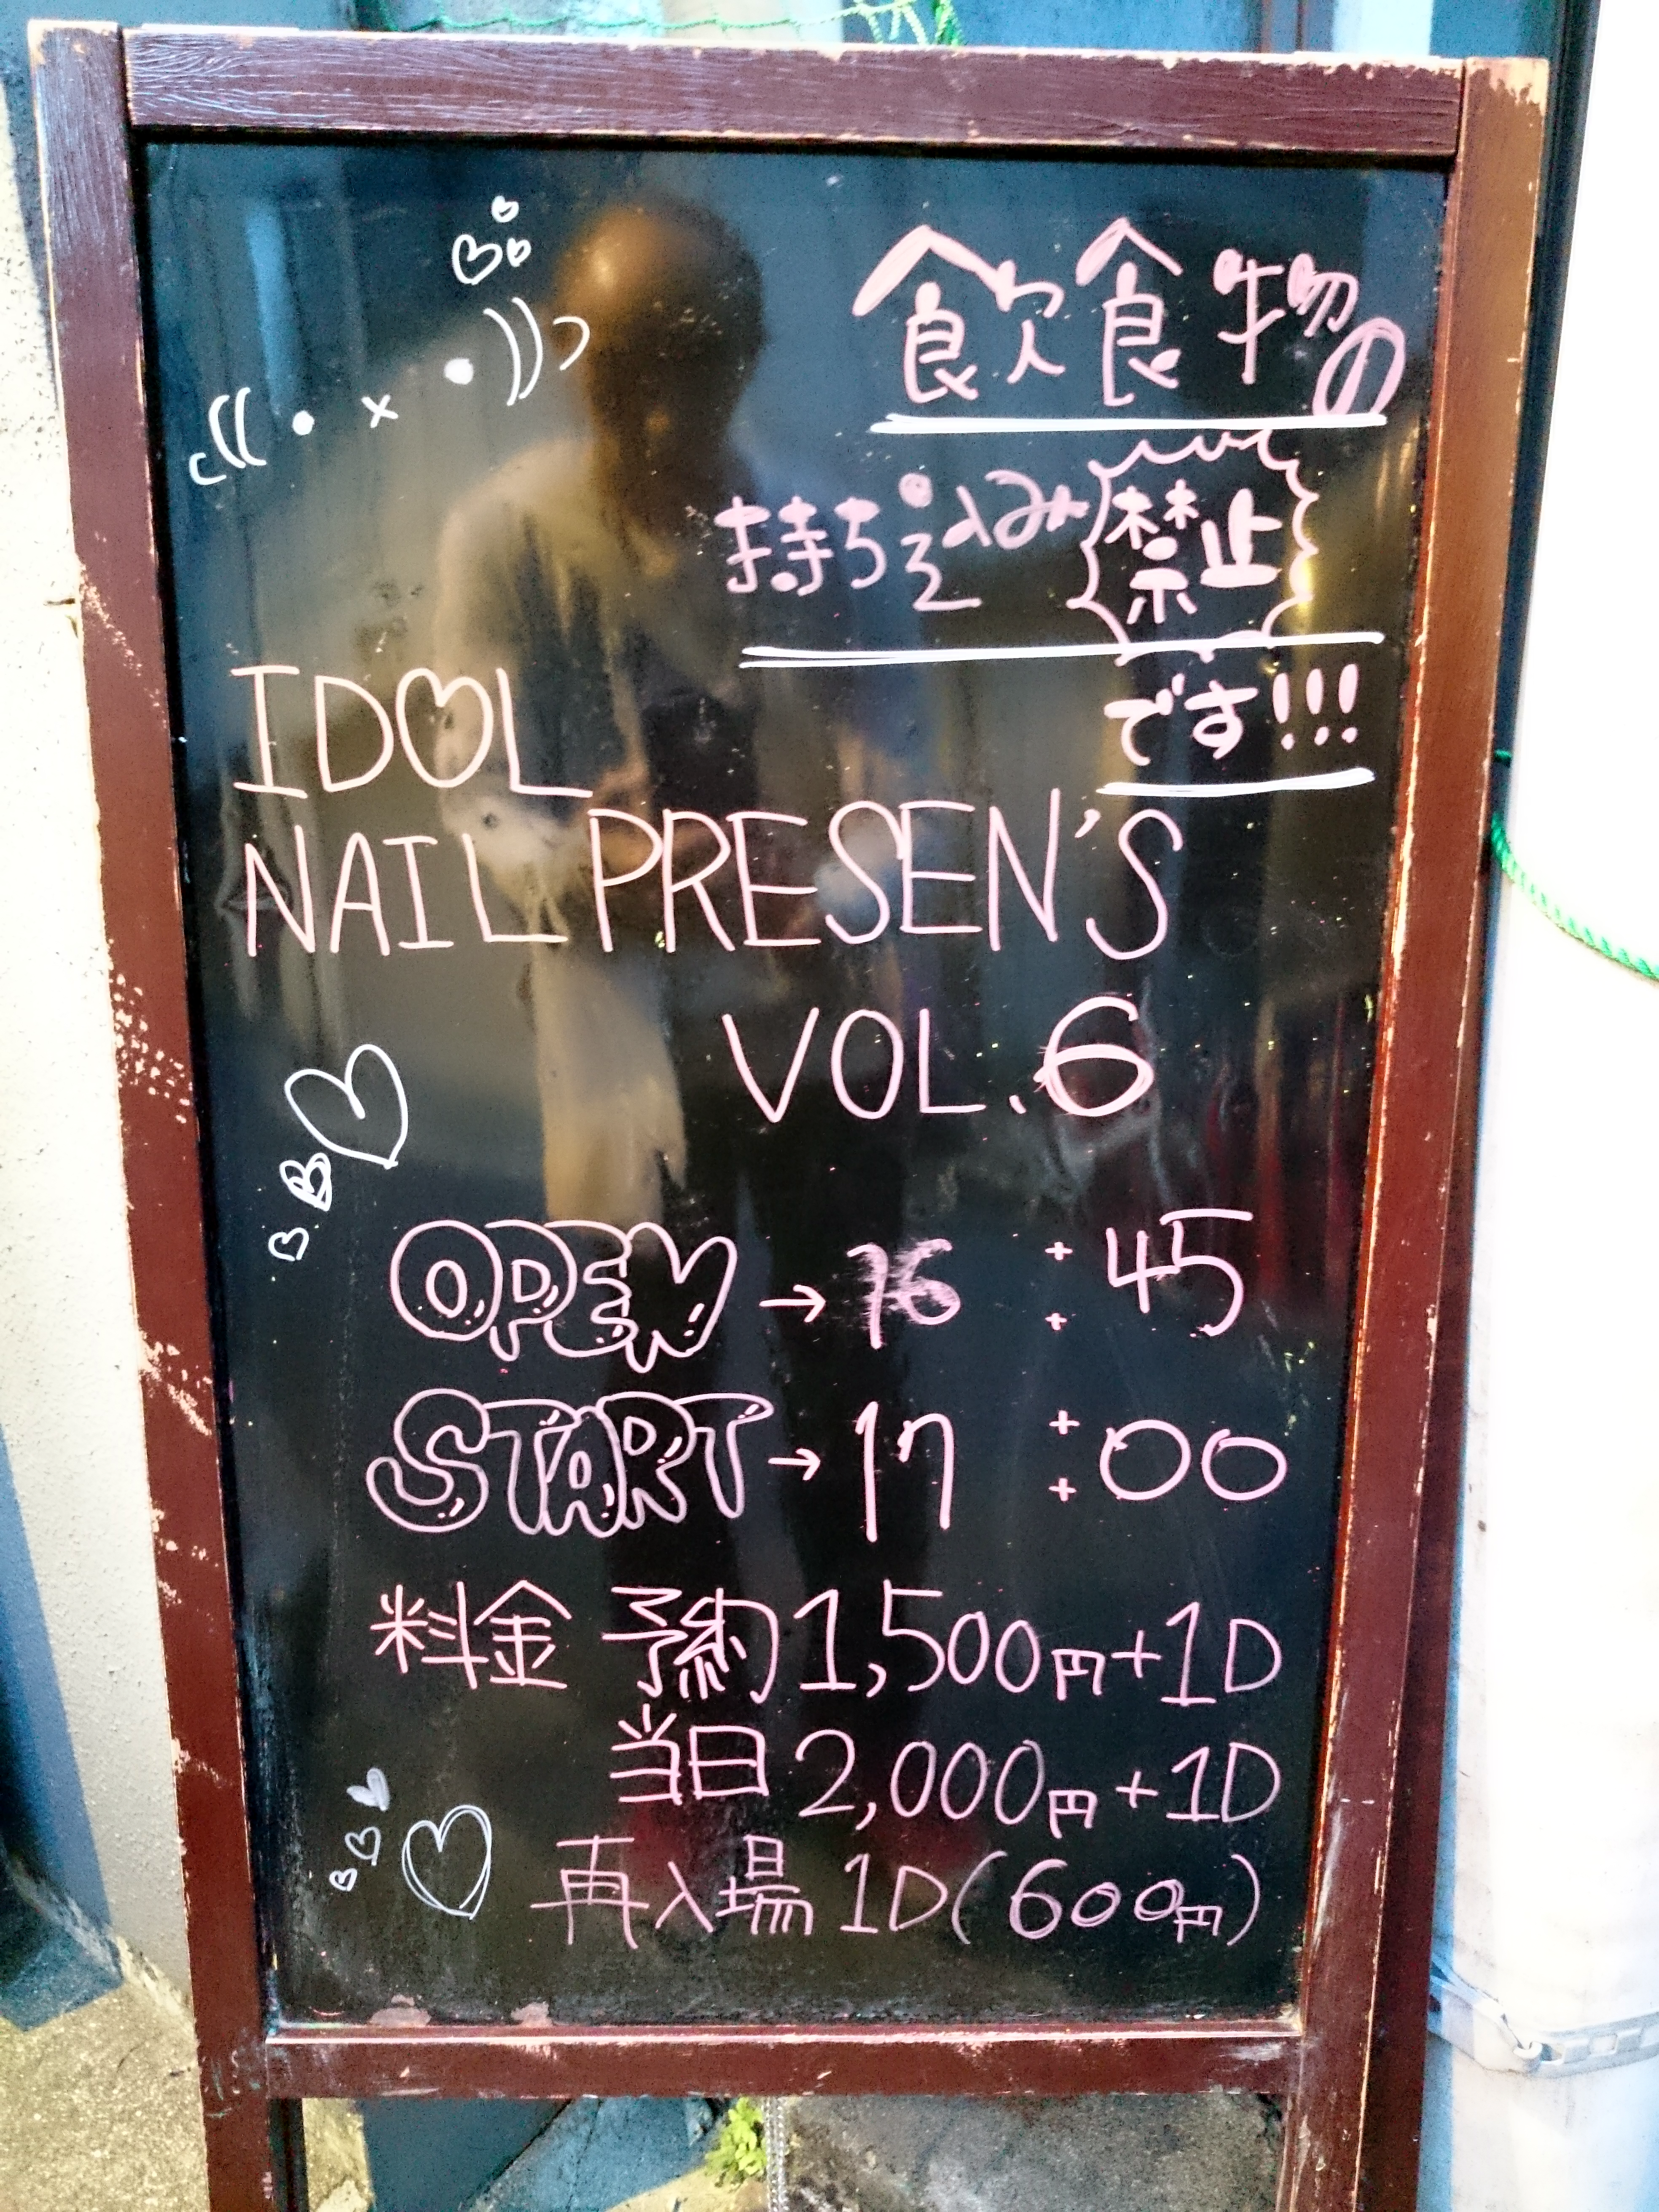 飲食物の
持ち込み禁止
です!!!
IDOL
NAIL PRESEN'S
VOL.6
OPEN→16:45
START→17:00
料金 予約1,500円+1D
当日2,000円+1D
再入場 1D(600円)